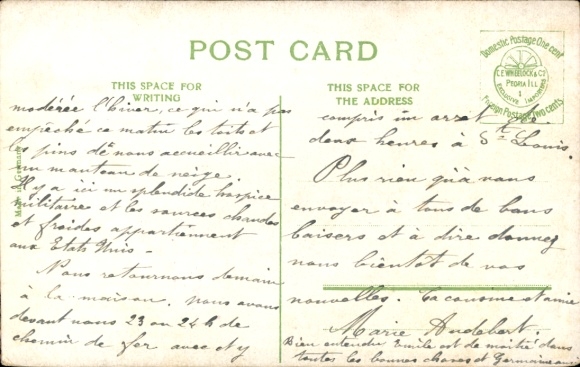 POST CARD
Domestic Postage One cent
C.E. WHEELOCK & CO
PEORIA ILL
EXCLUSIVE IMPORTERS
Foreign Postage Two cents
THIS SPACE FOR
WRITING
THIS SPACE FOR
THE ADDRESS
Made in Germany
modérée l'hiver, ce qui n'a pas
empêché ce matin les toits et
les pins de nous accueillir avec
un manteau de neige.
Il y a ici un splendide hospice
militaire et les sources chaudes
et froides appartiennent
aux Etats Unis -
Nous retournons demain
à la maison. nous avons
devant nous 23 ou 24 h de
chemin de fer avec et y
compris un arrêt de
deux heures à St Louis.
Plus rien qu'à vous
envoyer à tous de bons
baisers et à dire donnez
nous bientôt de vos
nouvelles. Ta cousine et amie
Marie Audebert.
Bien entendu Emile est de moitié dans
toutes les bonnes choses et Germaine aussi